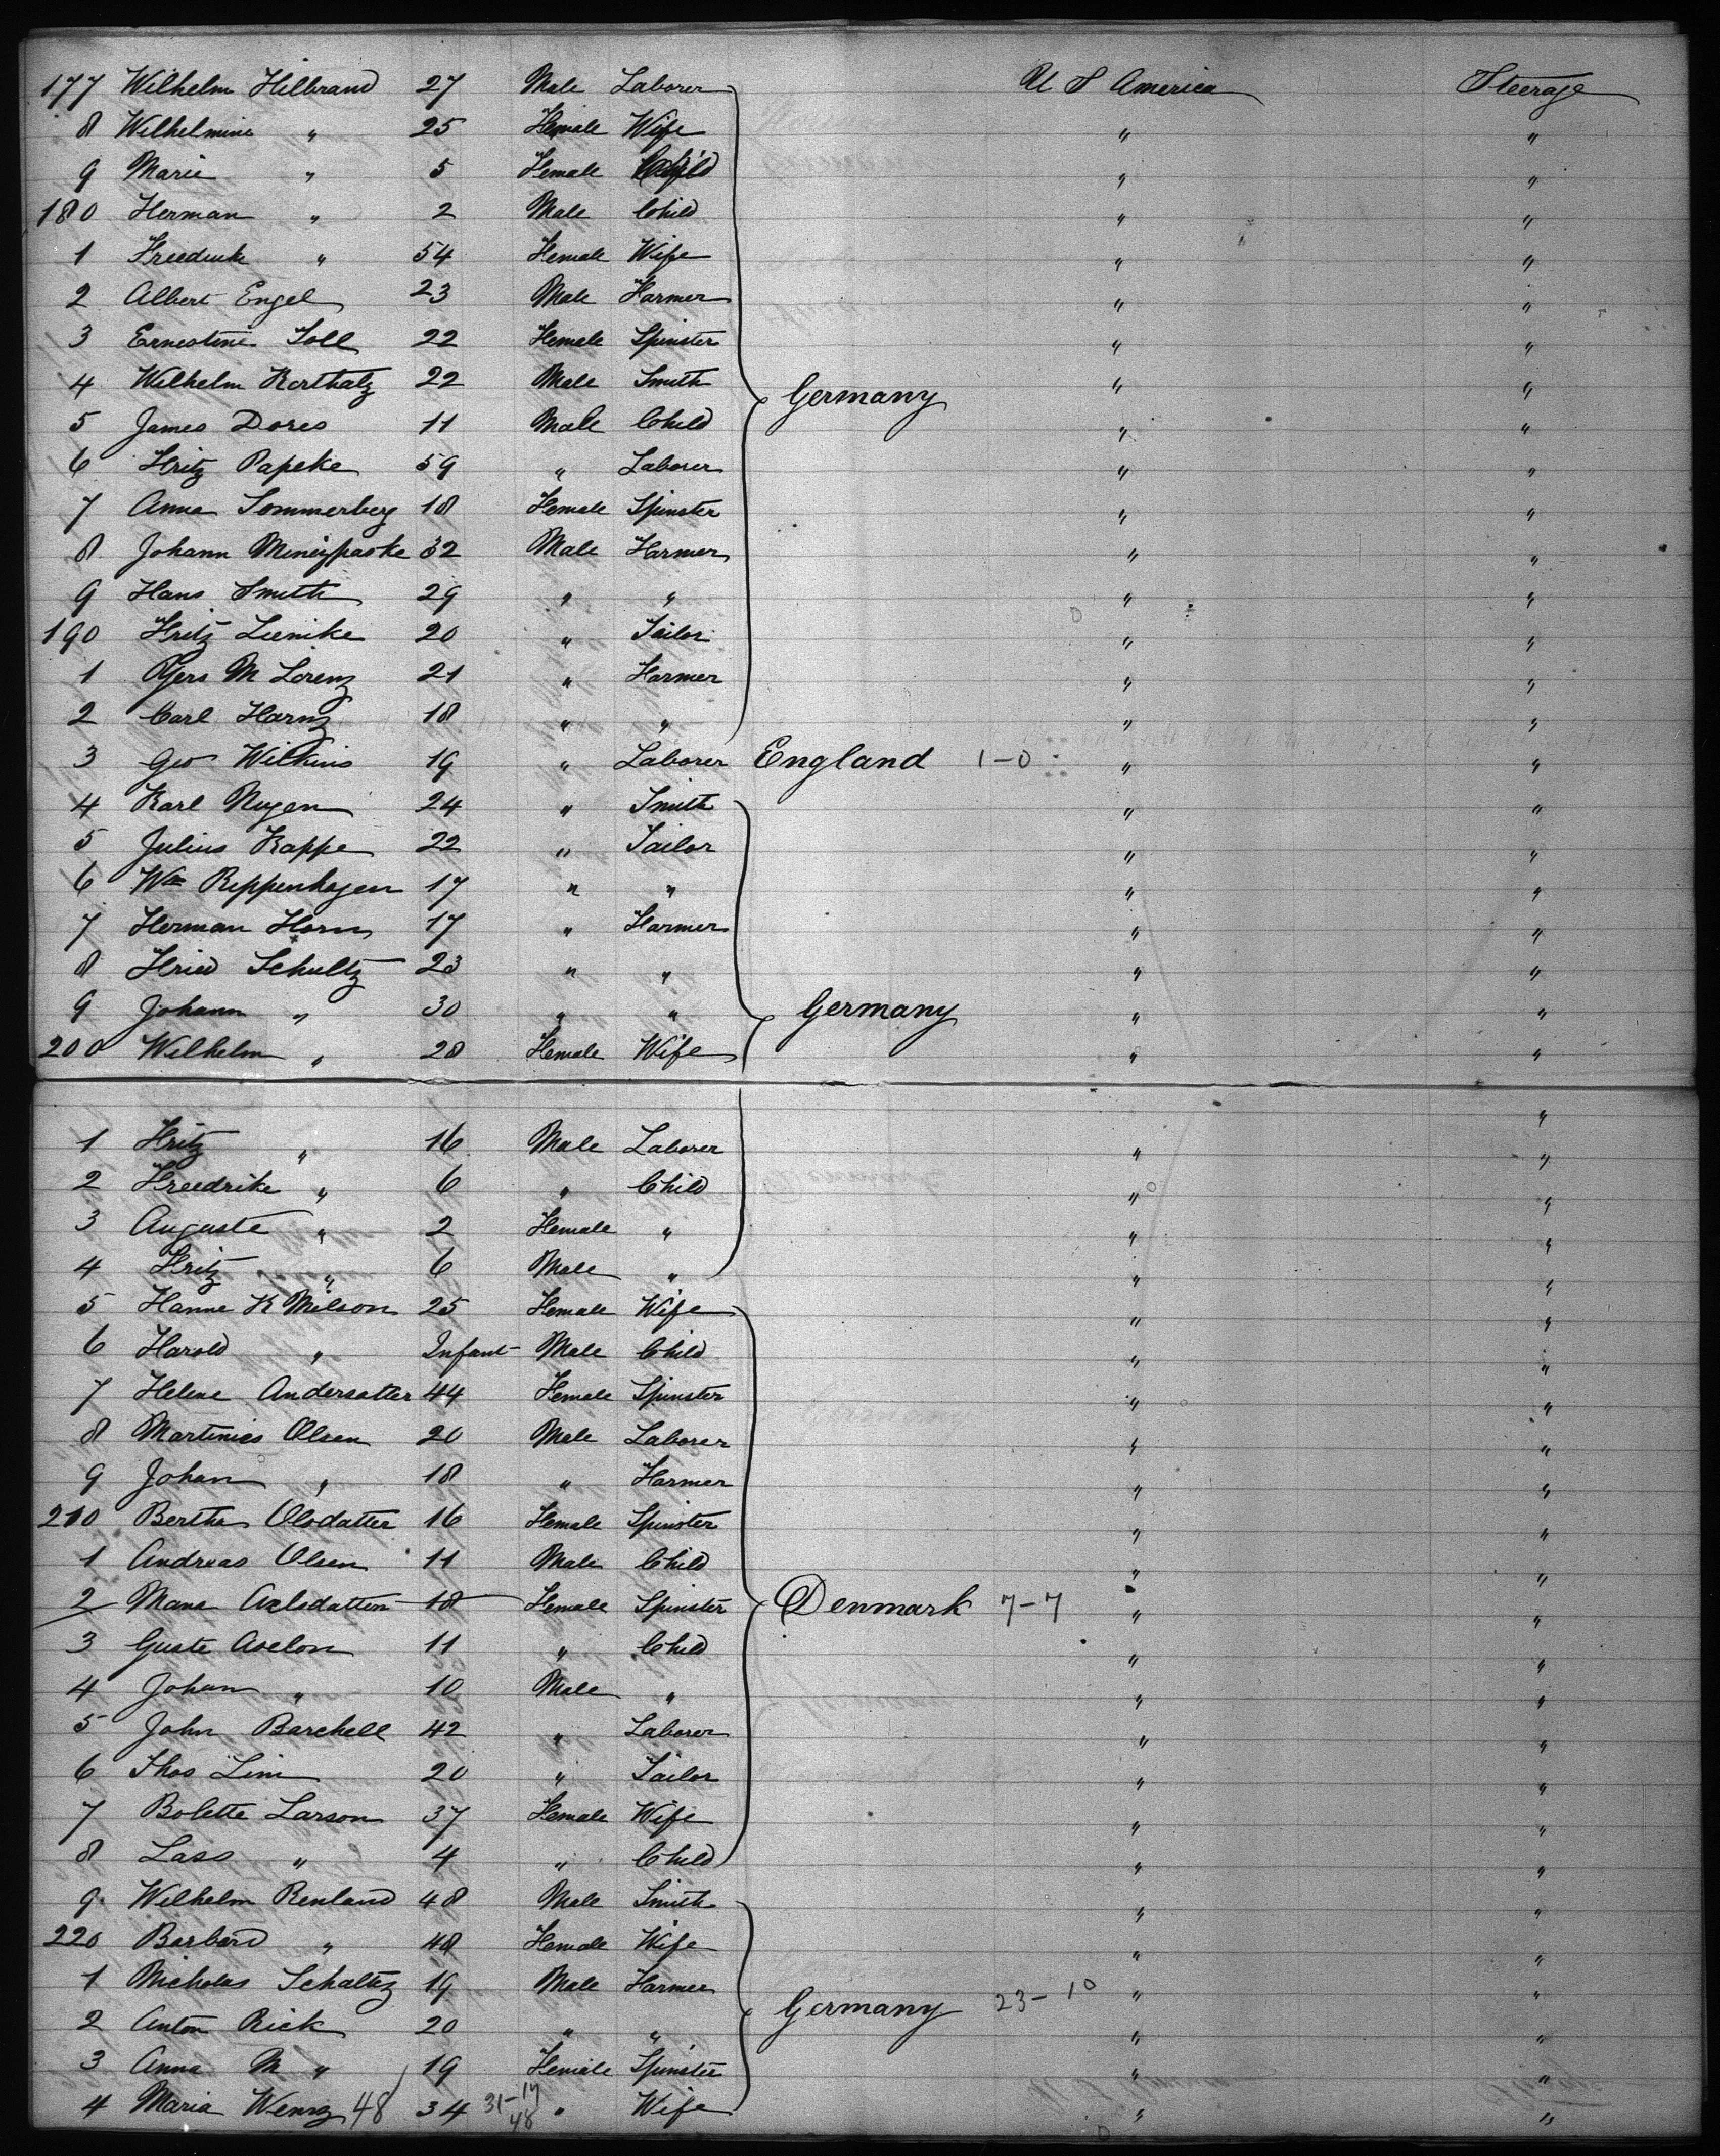 177 Wilhelm Hilbrand 27 Male Laborer U S America Steerage
8 Wilhelmine " 25 Female Wife " "
9 Marie " 5 Female Child " "
180 Herman " 2 Male Child " "
1 Freedrick " 54 Female Wife " "
2 Albert Engel 23 Male Farmer " "
3 Ernestine Toll 22 Female Spinster " "
4 Wilhelm Korthalz 22 Male Smith Germany " "
5 James Dores 11 Male Child " "
6 Fritz Papeke 59 " Laborer " "
7 Anna Sommerberg 18 Female Spinster " "
8 Johann 32 Male Farmer " "
9 Hans Smith 29 " " " "
190 Fritz Lienike 20 " Tailor " "
1 M Lorenz 21 " Farmer " "
2 Carl Harnz 18 " " " "
3 Geo Wilkins 19 " Laborer England 1-0 " "
4 Karl Nugen 24 " Smith " "
5 Julius Kappe 22 " Tailor " "
6 Wm Reppenhagen 17 " " " "
7 Herman Horn 17 " Farmer " "
8 Fried Schultz 23 " " " "
9 Johann " 30 " " Germany " "
200 Wilhelm " 28 Female Wife " "
"
1 Fritz " 16 Male Laborer " "
2 Freedrike " 6 " Child " "
3 Auguste " 2 Female " " "
4 Fritz " 6 Male " " "
5 Hanne K Milson 25 Female Wife " "
6 Harold " Infant Male Child " "
7 Helene Andersatter 44 Female Spinster " "
8 Martinies Olsen 20 Male Laborer " "
9 Johan " 18 " Farmer " "
210 Bertha Olsdatter 16 Female Spinster " "
1 Andreas Olsen 11 Male Child " "
2 Mana Axlsdatten 18 Female Spinster Denmark 7-7 " "
3 Guste Axelon 11 " Child " "
4 Johan " 10 Male " " "
5 John Barchell 42 " Laborer " "
6 Thos Lim 20 " Tailor " "
7 Bolette Larson 37 Female Wife " "
8 Lass " 4 " Child " "
9 Wilhelm Renland 48 Male Smith " "
220 Barbard " 48 Female Wife " "
1 Nicholas Schaltz 19 Male Farmer " "
2 Anton Rick 20 " " Germany 23-10 " "
3 Anna M " 19 Female Spinster " "
4 Maria Wenz 48 34 31-17 48 " Wife " "